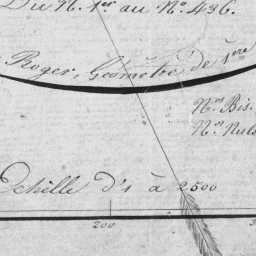 Du N. 1er au No. 436.
Roger, Géomètre de 1ère
Nos. Bis.
Nos. Nuls
Echelle d'1 à 2500
200